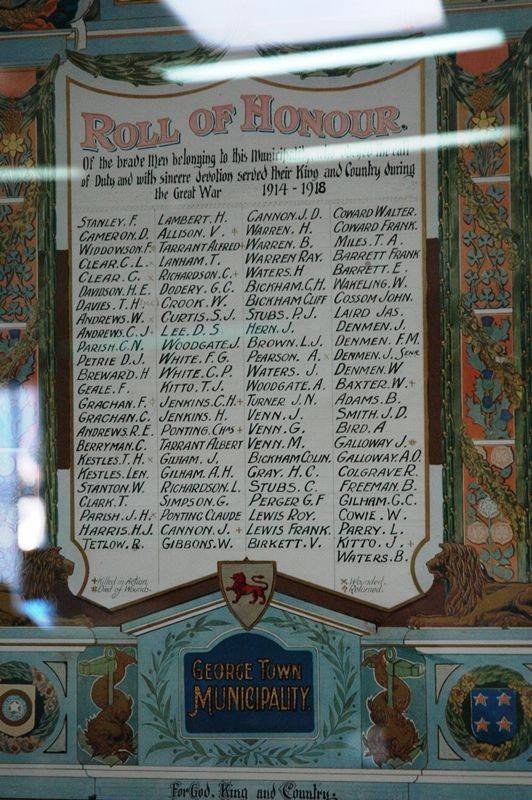 ROLL OF HONOUR.
Of the brave Men belonging to this
of Duty and with sincere devotion served their King and Country during
the Great War 1914-1918
STANLEY. F.
CAMERON. D.
WIDDOWSON. F.
CLEAR. C. L. ×
CLEAR. G. ×
DAVIDSON. H. E.
DAVIES. T. H.
ANDREWS. W. ×
ANDREWS. C. J. ×
PARISH. C. N.
PETRIE D. J.
BREWARD. H
GEALE. F.
GRACHAN. F. +
GRACHAN. C.
ANDREWS. R. E.
BERRYMAN. C.
KESTLES. T. H. ×
KESTLES. LEN.
STANTON. W.
CLARK. T.
PARISH. J. H. ×
HARRIS. H. J.
TETLOW. R.
LAMBERT. H.
ALLISON. V. +
TARRANT ALFRED +
LANHAM. T.
RICHARDSON. C. +
DODERY. G. C.
CROOK. W.
CURTIS. S. J.
LEE. D. S
WOODGATE. J.
WHITE. F. G.
WHITE. C. P.
KITTO. T. J.
JENKINS. C. H. +
JENKINS. H.
PONTING. CHAS +
TARRANT ALBERT
GILHAM. J.
GILHAM. A. H.
RICHARDSON. L.
SIMPSON. G.
PONTING CLAUDE
CANNON. J. +
GIBBONS. W.
CANNON. J. D.
WARREN. H.
WARREN. B.
WARREN RAY.
WATERS. H
BICKHAM. C. H.
BICKHAM CLIFF
STUBS. P. J.
HERN. J.
BROWN. L. J.
PEARSON. A. ×
WATERS. J.
WOODGATE. A.
TURNER J. N.
VENN. J.
VENN. G.
VENN. M.
BICKHAM COLIN.
GRAY. H. C.
STUBS. C.
PERGER G. F
LEWIS ROY.
LEWIS FRANK.
BIRKETT. V.
COWARD WALTER.
COWARD FRANK.
MILES. T. A.
BARRETT FRANK
BARRETT. E.
WAKELING. W.
COSSOM JOHN.
LAIRD JAS.
DENMEN. J.
DENMEN. F. M.
DENMEN. J. SENR.
DENMEN. W
BAXTER. W. +
ADAMS. B.
SMITH. J. D.
BIRD. A
GALLOWAY J.
GALLOWAY. A. O.
COLGRAVE R.
FREEMAN B.
GILHAM. G. C.
COWIE. W.
PARRY. L.
KITTO. J. +
WATERS. B.
+ Killed in Action.
Died of Wounds.
× Wounded.
Returned.
GEORGE TOWN
MUNICIPALITY.
For God, King and Country.